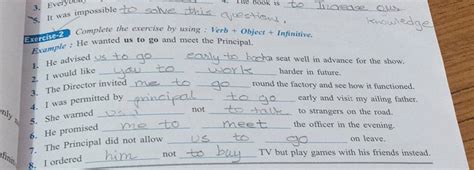 3. Everybody
4. The book is to Increase our knowledge
5. It was impossible to solve this question.
Exercise-2 Complete the exercise by using : Verb + Object + Infinitive.
Example : He wanted us to go and meet the Principal.
1. He advised us to go early to book a seat well in advance for the show.
2. I would like you to work harder in future.
3. The Director invited me to go round the factory and see how it functioned.
4. I was permitted by principal to go early and visit my ailing father.
5. She warned not to talk to strangers on the road.
6. He promised me to meet the officer in the evening.
7. The Principal did not allow us to go on leave.
8. I ordered him not to buy TV but play games with his friends instead.